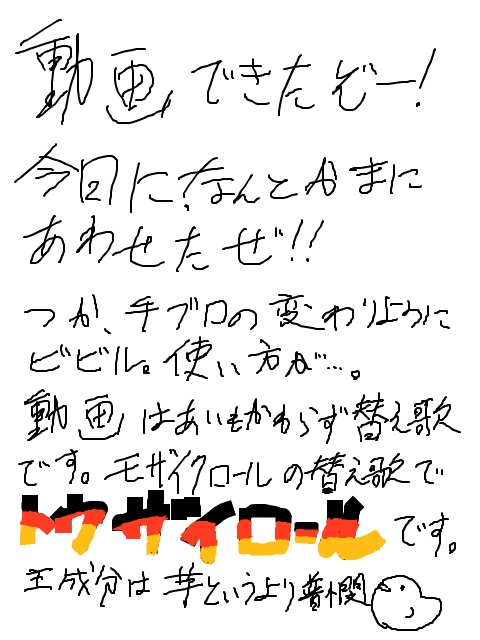 動画できたぞー!
今日に!なんとかまに
あわせたぜ!!
つか、手ブロの変わりように
ビビル。使い方が…。
動画はあいもかわらず替え歌
です。モザイクロールの替え歌で
トウザイロールです。
主成分は芋というより普憫